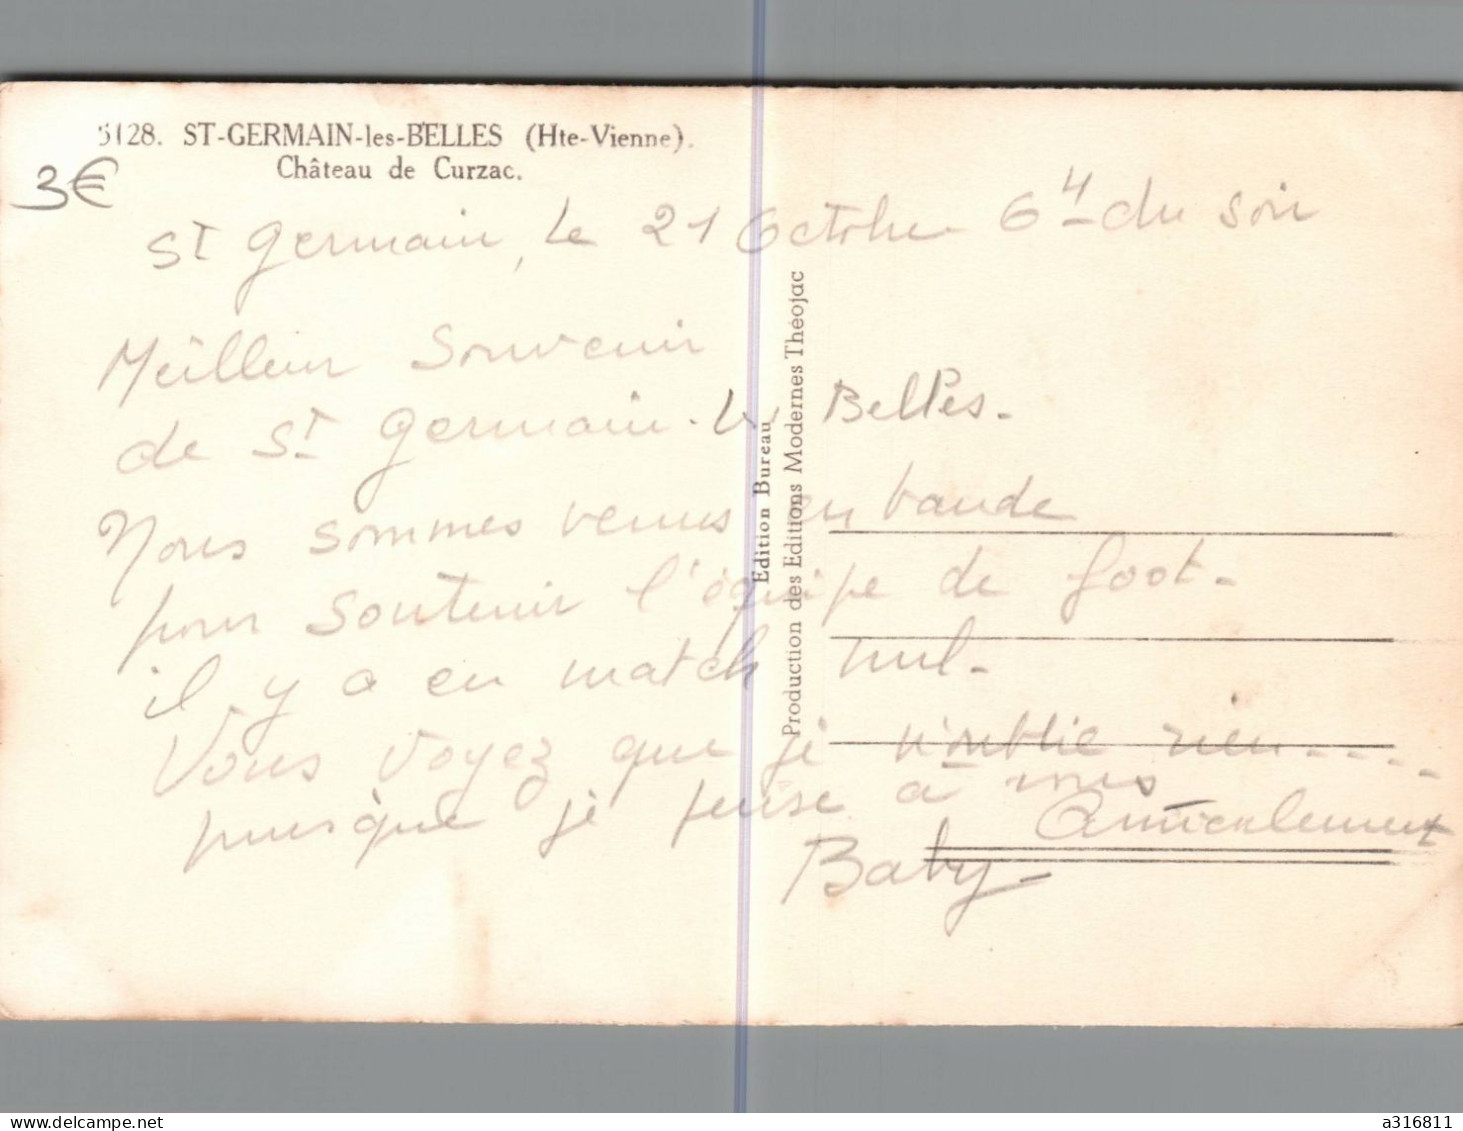 5128. ST-GERMAIN-les-BELLES (Hte-Vienne).
Château de Curzac.
3€
St Germain, le 21 Octobre 6H du soir
Meilleur Souvenir
de St Germain-les Belles.
Nous sommes venus en bande
pour soutenir l'équipe de foot-
il y a eu match nul-
Vous voyez que je n'oublie rien....
puisque je pense à vous
Amicalement
Baby-
Edition Bureau
Production des Editions Modernes Théojac
delcampe.net
a316811